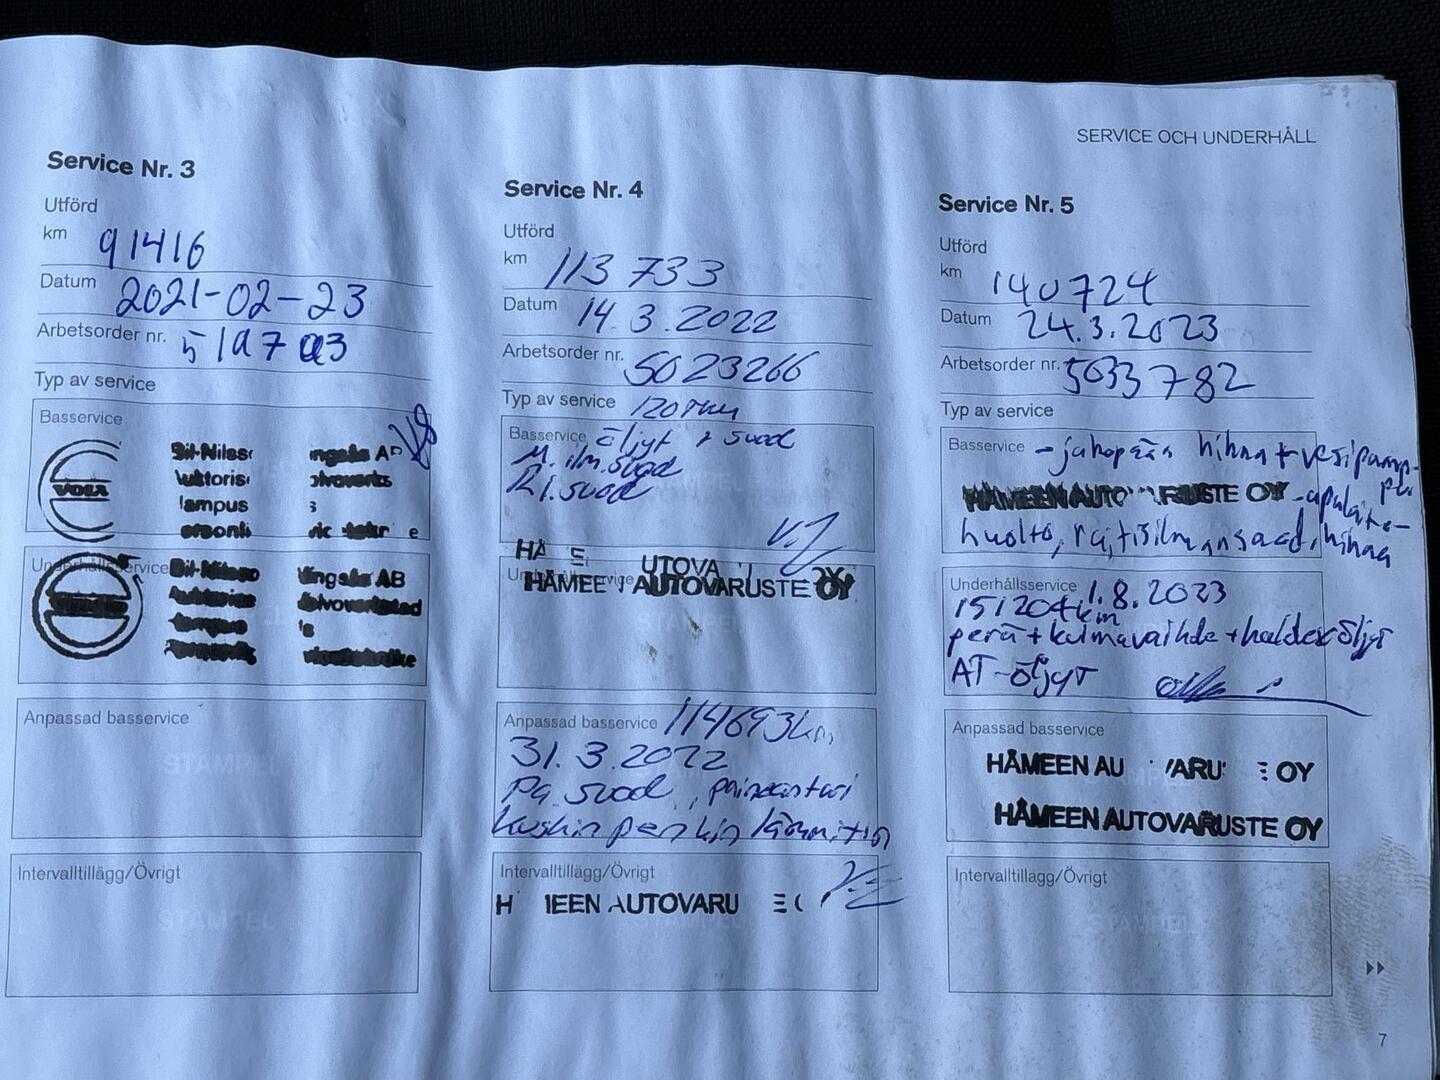 SERVICE OCH UNDERHÅLL
Service Nr. 3
Utförd
km 91416
Datum 2021-02-23
Arbetsorder nr.
Typ av service
Basservice
VOLVO
Bil-Nilsso
Underhållsservice
Bil-Nilsso ingsås AB
Anpassad basservice
STÄMPEL
Intervalltillägg/Övrigt
STÄMPEL
Service Nr. 4
Utförd
km 113 733
Datum 14.3.2022
Arbetsorder nr. 5023266
Typ av service 120 tkm
Basservice öljyt + suod
M. ilm.suod
R.i.suod
HÄ E UTOVA
Underhållsservice
HÄMEE AUTOVARUSTE OY
Anpassad basservice 114693km
31.3.2022
Pa suod, paineanturi
kuskin penkin lämmitin
Intervalltillägg/Övrigt
H IEEN AUTOVARU
STÄMPEL
Service Nr. 5
Utförd
km 140724
Datum 24.3.2023
Arbetsorder nr. 5033782
Typ av service
Basservice - jakopään hihna + vesipump-
HÄMEEN AUTOVARUSTE OY - apulaite-
huolto, raitisilmansuod, hihna
Underhållsservice 1.8.2023
151204km
perä + kulmavaihde + haldex öljyt
AT-öljyt
Anpassad basservice
HÄMEEN AU VARU E OY
HÄMEEN AUTOVARUSTE OY
Intervalltillägg/Övrigt
STÄMPEL
7